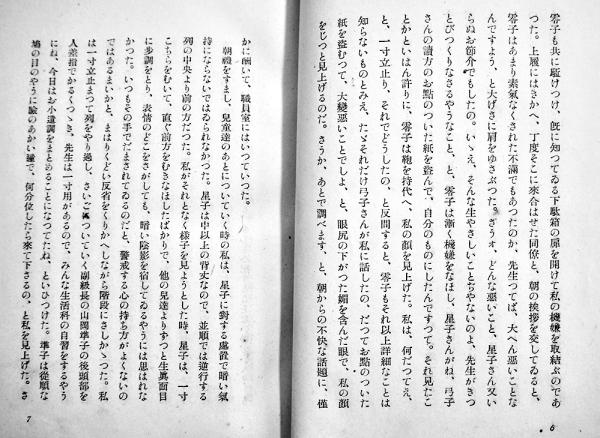 零子も共に駈けつけ、既に知つてゐる下駄箱の扉を開けて私の機嫌を取結ぶのであ
つた。上履にはきかへ、丁度そこに來合はせた同僚と、朝の挨拶を交してゐると、
零子はあまり素氣なくされた不滿でもあつたのか、先生つてば、大へん惡いことな
んですよう、と大げさに肩をゆさぶつた。さうォ、どんな惡いこと、星子さん又い
らぬお節介でもしたの。いゝえ、そんな生やさしいことぢやないのよ、先生がきつ
とびつくりなさるやうなこと、と、零子は漸く機嫌をなほし、星子さんがね、弓子
さんの讀方のお點のついた紙を盜んで、自分のものにしたんですつて。それ見たこ
とかといはん許りに、零子は鞄を持代へ、私の顏を見上げた。私は、何だつてえ、
と、一寸立止り、それでどうしたの、と反問すると、零子もそれ以上詳細なことは
知らないものとみえ、たゞそれだけ弓子さんが私に話したの、だつてお點のついた
紙を盜むつて、大變惡いことでしよ、と、眼尻の下がつた媚を含んだ眼で、私の顏
をじつと見上げるのだ。さうか、あとで調べます、と、朝からの不快な話題に、僅
6
かに酬いて、職員室にはいつていつた。
朝禮をすまし、兒童達のあとについていく時の私は、星子に對する處置で暗い氣
持にならないではゐられなかつた。星子は中以上の背丈なので、並順では逆行する
列の中央より前の方だつた。私がそれとなく樣子を見ようとした時、星子は、一寸
こちらをむいて、直ぐ前方をむきなほしたばかりで、他の兒達よりずつと生眞面目
に步調をとり、表情のどこをさがしても、暗い陰影を宿してゐるやうには思はれな
かつた。いつもその手でだまされてゐるのだと、警戒する心の持ち方がよくないの
ではあるまいかと、まはりくどい反省をくりかへしながら階段にさしかゝつた。私
は一寸立止まつて列をやり過し、さいごについていく副級長の山岡準子の後頭部を
人差指でかるくつゝき、先生は一寸用があるので、みんな生活科の自習をするやう
にね、今日はお小遣調をまとめることになつてたね、といひつけた。準子は從順な
鳩の目のやうに瞼のあかい瞳で、何分位したら來て下さるの、と私を見上げた。さ
7